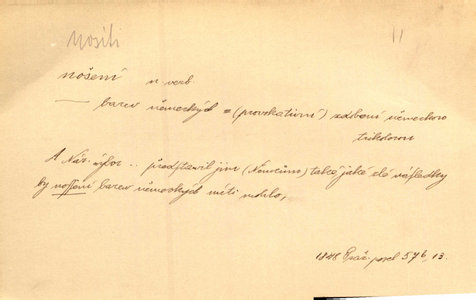 nositi
nošení n. verb.
— barev německých = (provokativní) zdobení německou
trikolorou
A Nár. výbor .. představil jim (Němcům) také jaké zlé následky
by nošení barev německých míti mohlo,
1848 Praž. posel 576, 13.